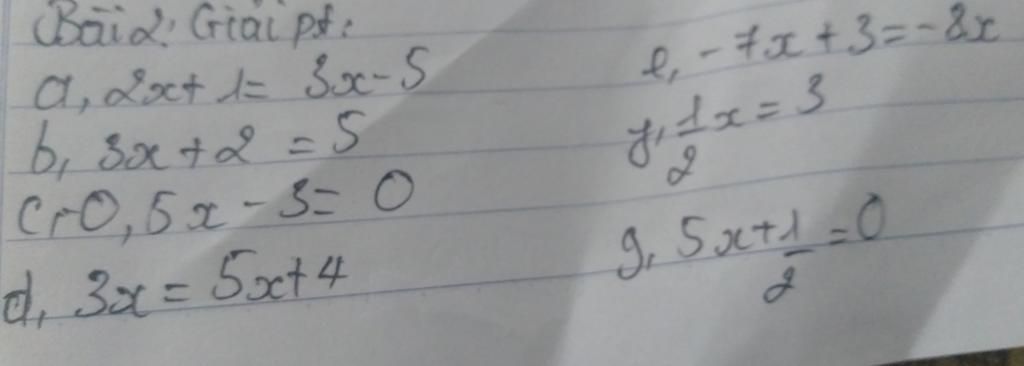 Bài 2: Giải pt:
a, 2x + 1 = 3x - 5
b, 3x + 2 = 5
c, -0,5x - 3 = 0
d, 3x = 5x + 4
e, -7x + 3 = -8x
f, 1/2 x = 3
g, 5x + 1/2 = 0